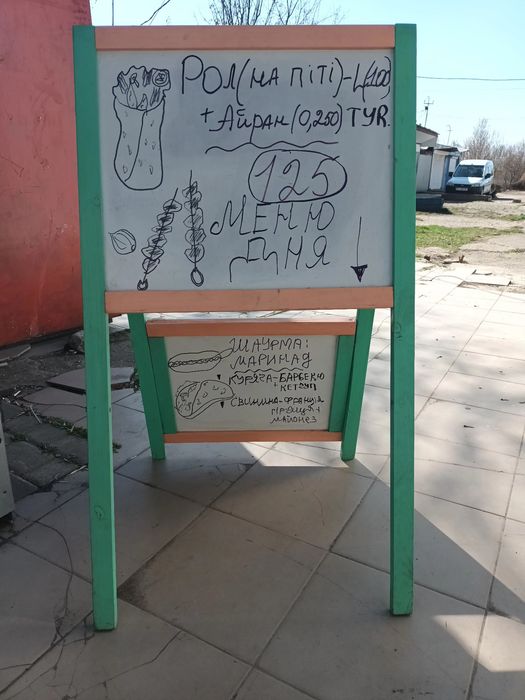 РОЛ(НА ПІТІ)-L(400)
+ АЙРАН(0,250) TYR.
125
МЕНЮ
ДНЯ
ШАУРМА:
МАРИНАД
КУРЯЧА-БАРБЕКЮ
КЕТЧУП
СВИНИНА-ФРАНЦУЗ
ГІРЧИЦЯ+
МАЙОНЕЗ